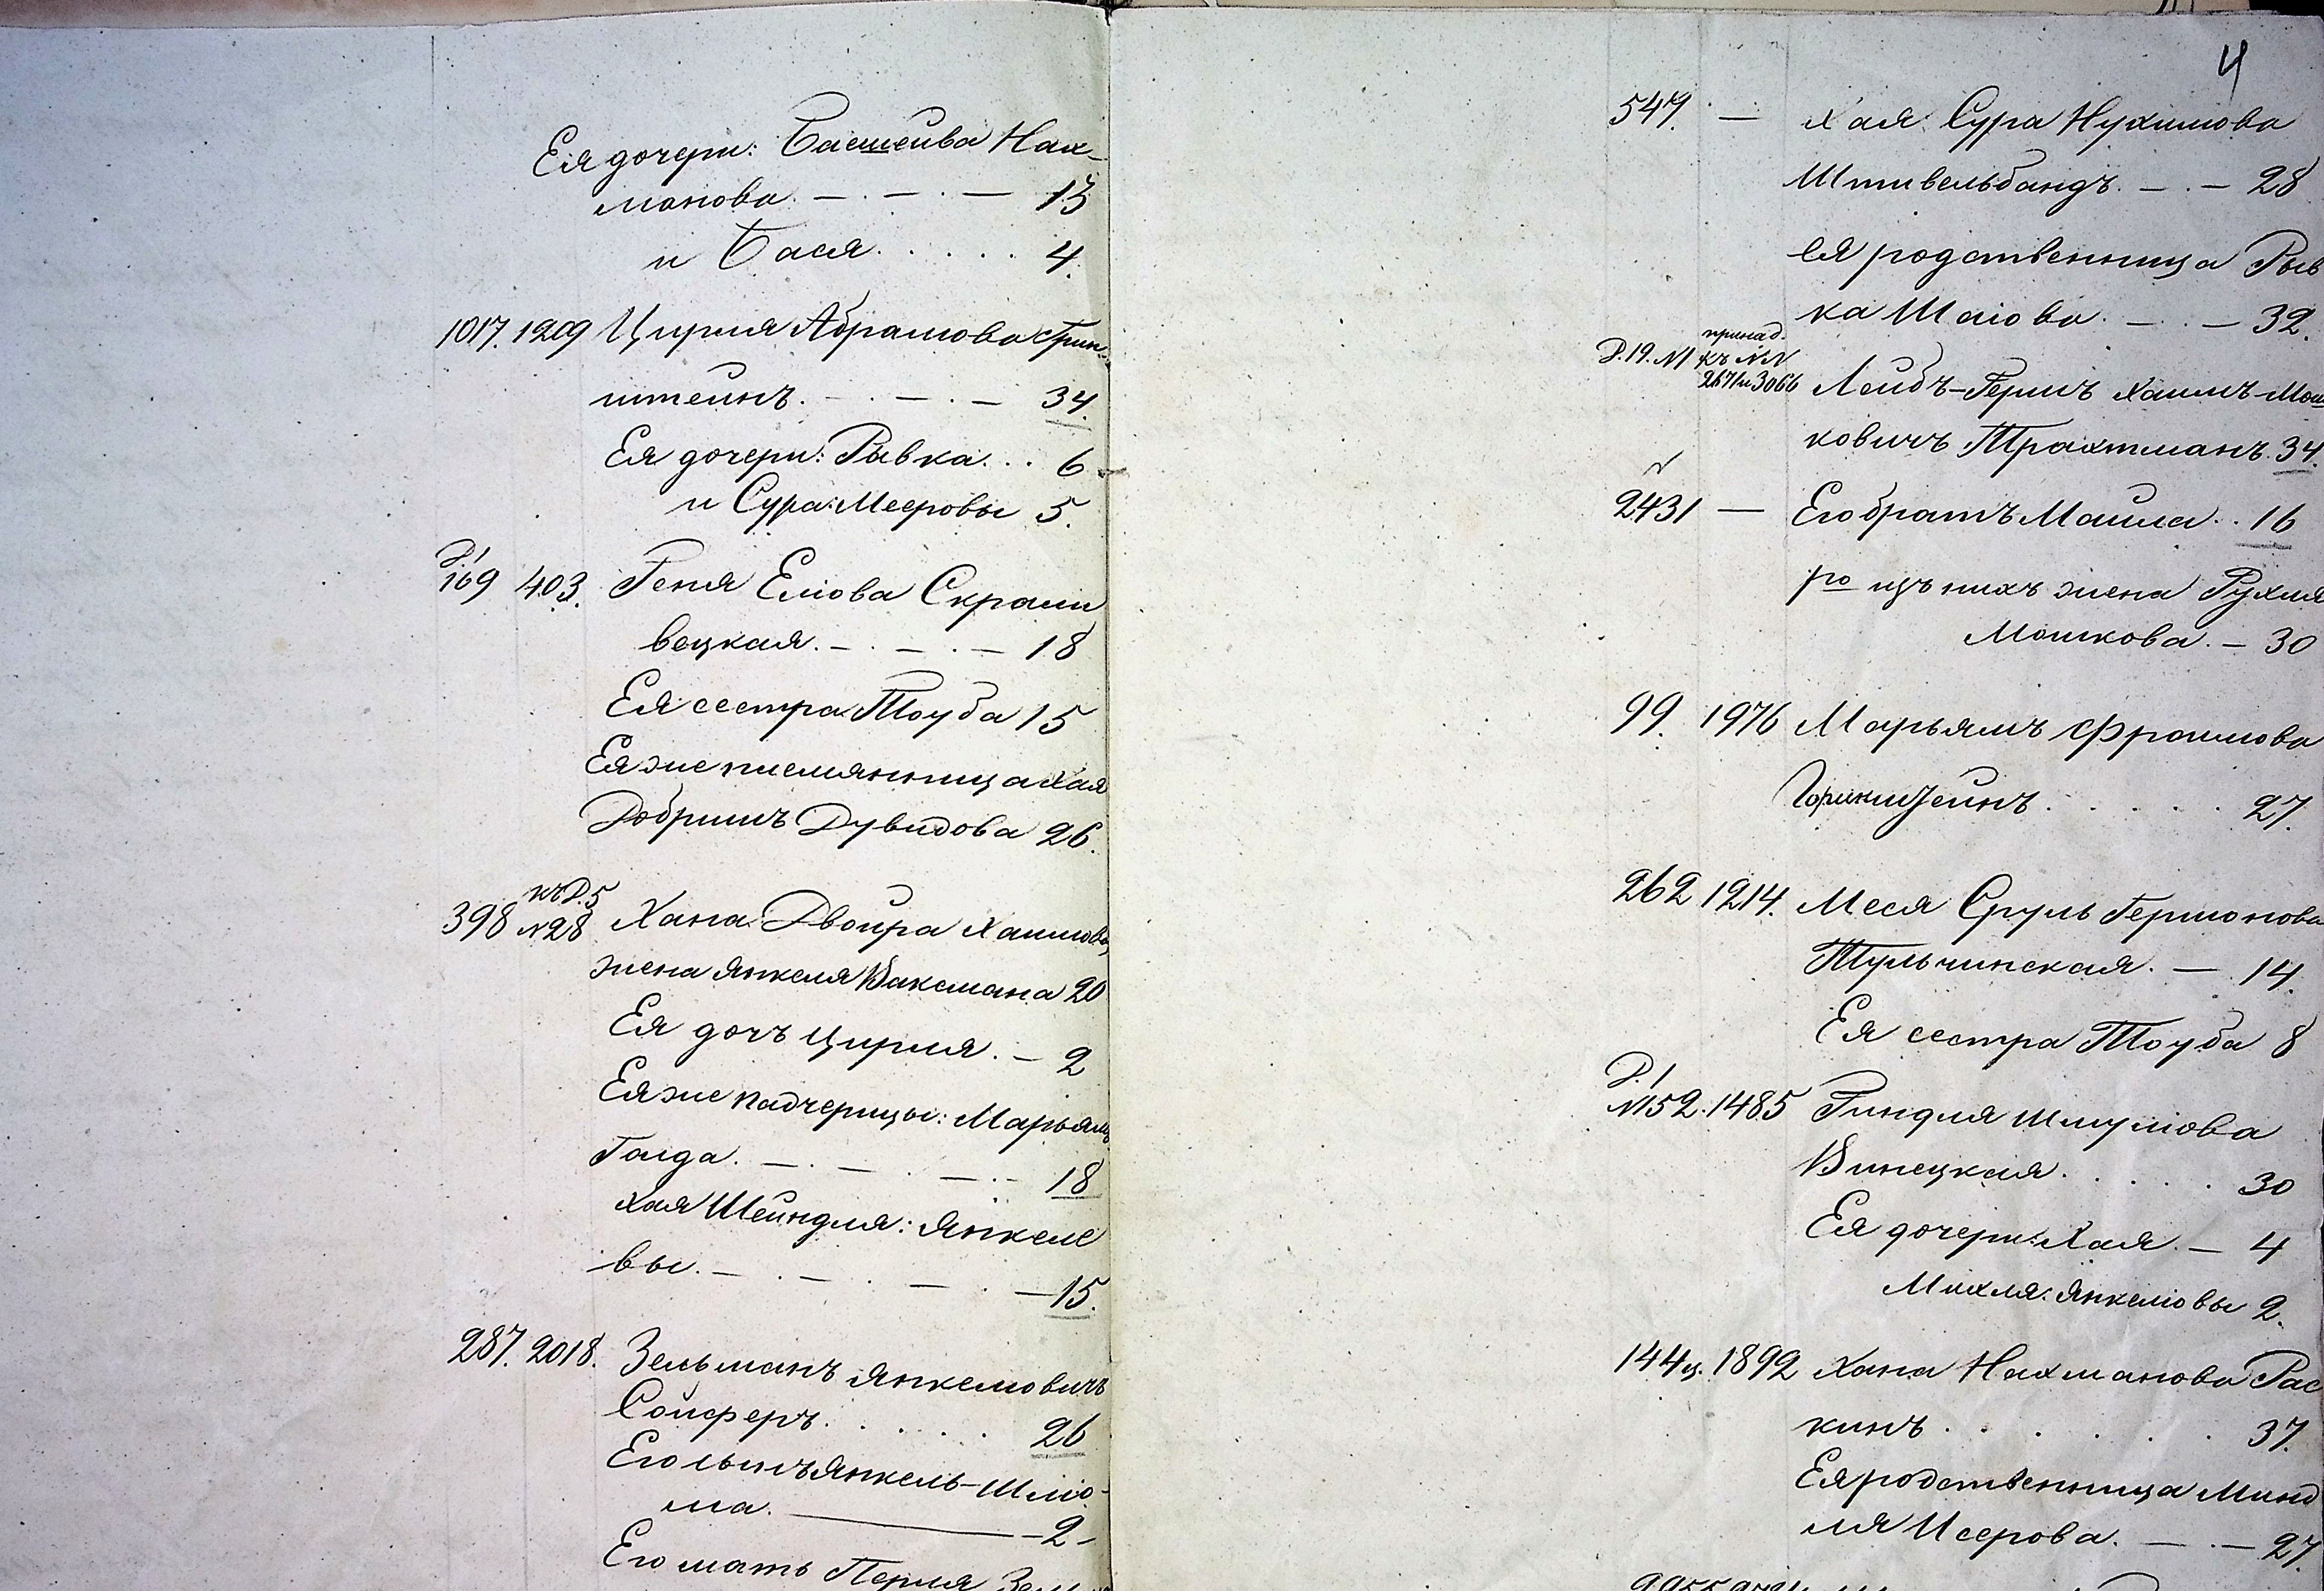 Ея дочери: Басшейва Нах-
манова. — . — . — 13
и Бася . . . . . 4.
1017. 1209 Цирля Абрамова Грин-
штейнъ. — . — . — 34.
Ея дочери: Рывка. . . 6
и Сура: Мееровы 5.
Р.1
169 403. Геня Еліова Скрали
вецкая. — . — . — 18
Ея сестра Тоуба 15
Ея же племянница Хая
Добришъ Дувидова 26.
къ Р.5
398 №28 Хана Двойра Хаимова,
жена Янкеля Ваксмана 20
Ея дочь Цирля. — 2
Ея же падчерицы: Марьямъ
Голда. — . — . — . — 18
Хая Шейндля: Янкеле
вы. — . — . — . — 15.
287. 2018. Зельманъ Янкелювичъ
Сойферъ. . . . . . 26
Его сынъ Янкель-Шлио-
ма. ——— 2
Его мать Перля Зель
4
547. — Хая Сура Нухимова
Штивельбандъ. — . — 28
ея родственница Рыв
ка Шаіова. — . — 32.
Р.19. №1 принад.
къ №№
2671 и 3066 Лейбъ-Гершъ Хаимъ-Мош
ковичъ Трахтманъ. 34.
2431 — Его брать Маила. . 16
1го изъ нихъ жена Рухля
Мошкова. — 30
99. 1976 Марьямъ Фроимова
Горинштейнъ. . . . . 27.
262 1214. Меся Сруль Гершонова
Тульчинская. — . 14.
Ея сестра Тоуба 8
Р.1
№152. 1485 Гиндля Шмуліова
Винецкая. . . . . . 30
Ея дочери: Хая. — 4
Михля: Янкеліовы 2.
144 ч. 1892 Хана Нахманова Рас
кинъ . . . . . . 37.
Ея родственница Минд
ля Исерова. — . — 27.